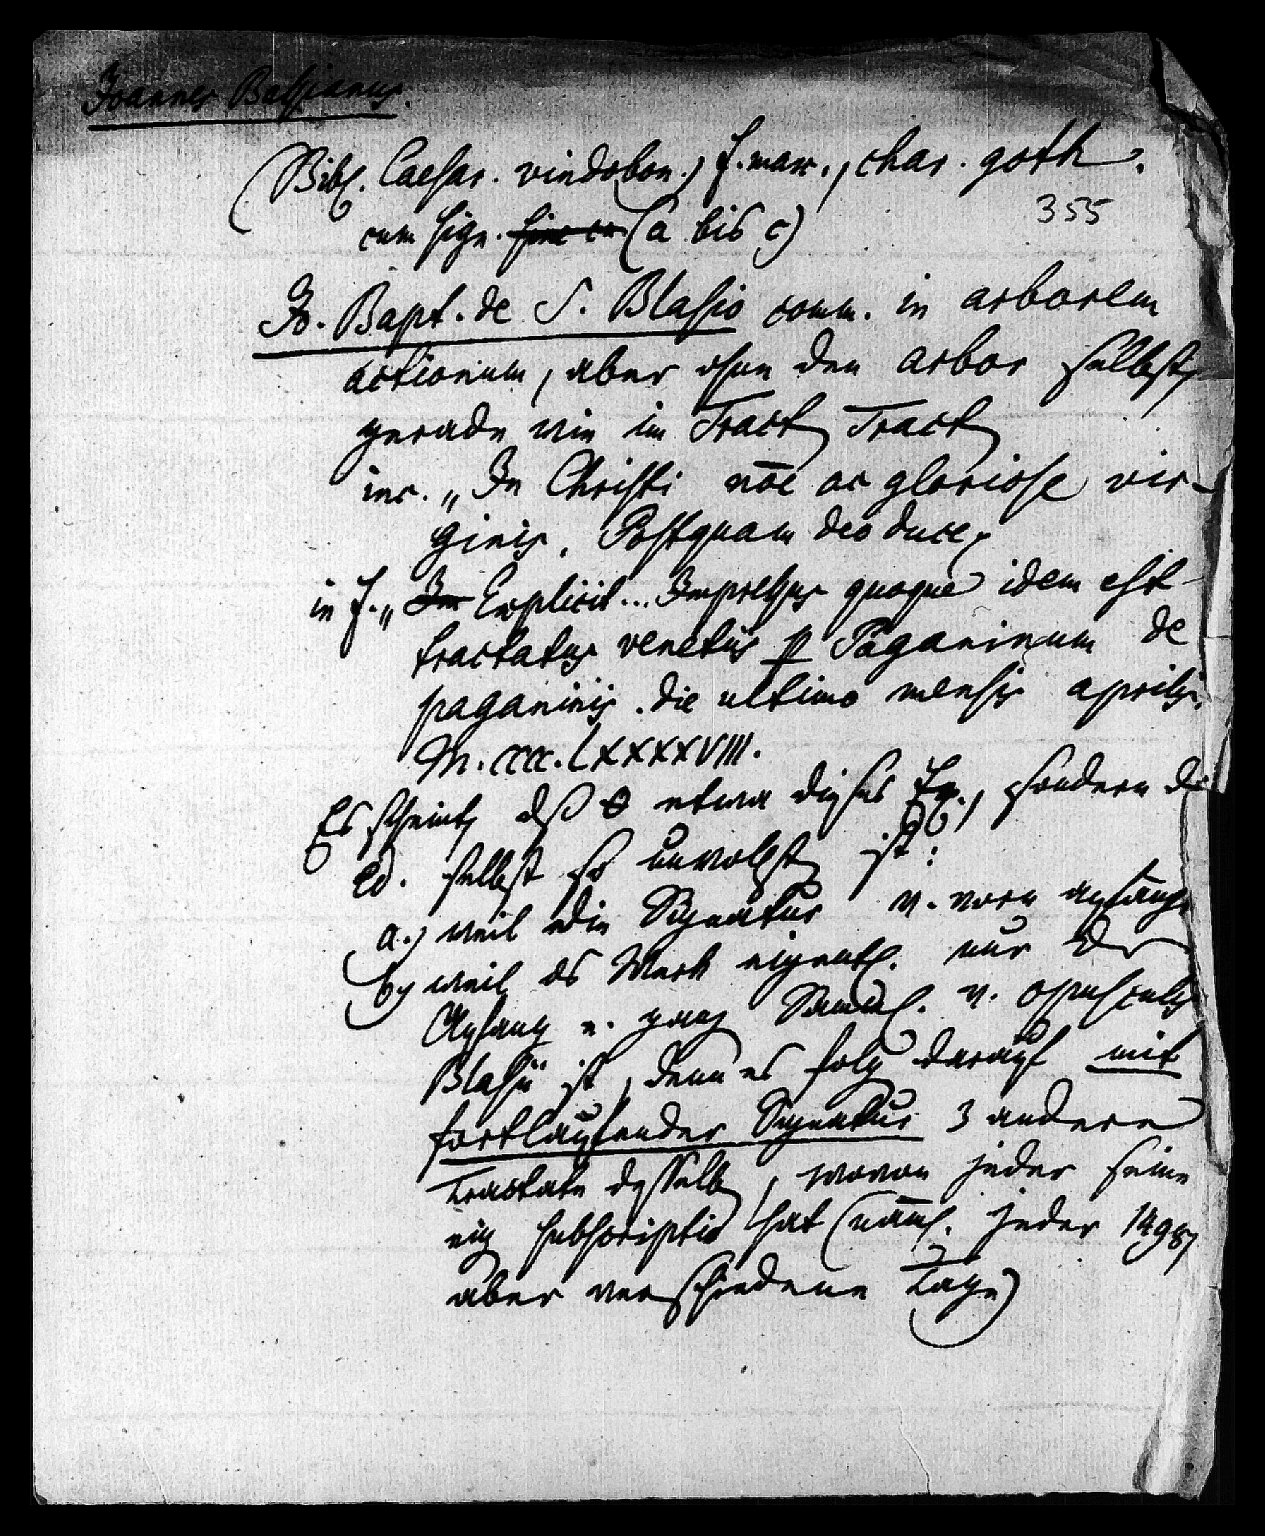 Joannes Bassianus.
(Bibl. Caesar. vindobon.) f. max., char. goth.
355
cum sign. (a bis c)
Jo. Bapt. de S. Blasio comm. in arborem
actionum, aber ohne den arbor selbst,
gerade wie im Tract Tract
inc. „In Christi nōe ac gloriose vir-
ginis. Postquam deo duce,
in f. „Im Explicit... Impressus quoque idem est
tractatus venetiis p Paganinum de
paganinis. die ultimo mensis aprilis.
M.cccc.LXXXXVIII.
Es scheint, dß etwa dieses Ex., sondern die
ed. selbst so unvollst. ist:
a.) weil die Signatur v. vorn anfängt
b) weil ds Werk eigentl. nur der
Anfang e. ganz Samml. v. opusculis
Blasii ist, denn es folg darauf mit
fortlaufender Signatur 3 andere
Tractate desselb, wovon jeder seine
eig subscriptio hat (näml. jeder 1498,
aber verschiedene Tage)